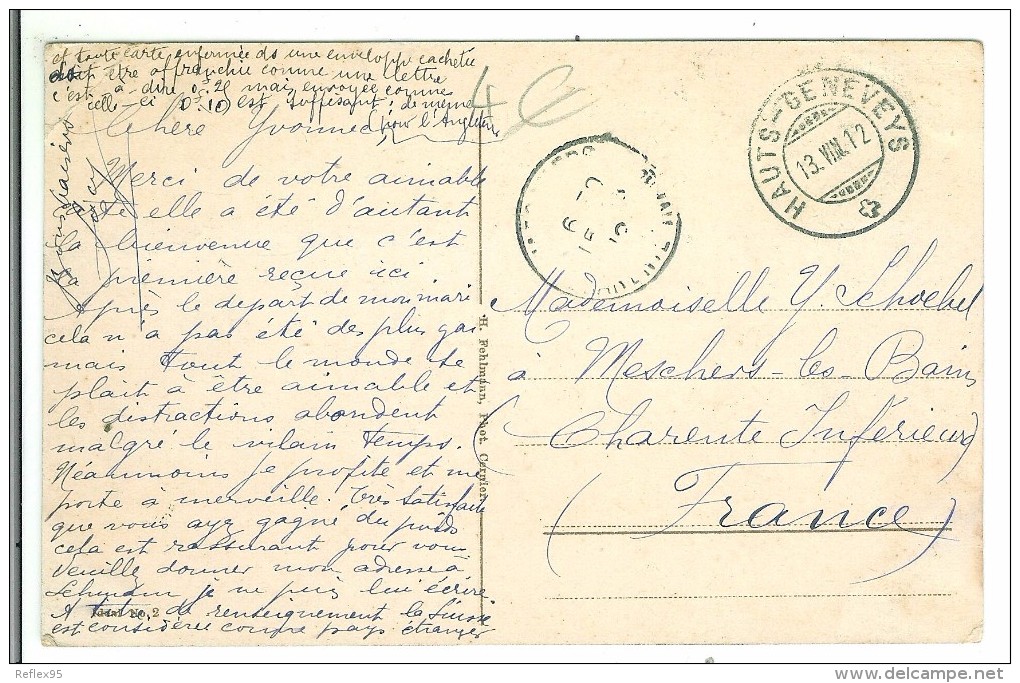 et toute carte enfermée ds une enveloppe cachetée
doit être affranchie comme une lettre
c'est à dire 0.25 mais envoyée comme
celle-ci 0.10 est suffisant; de meme
pour l'Angleterre
Chère Yvonne,
Merci de votre aimable
elle a été d'autant
la bienvenue que c'est
la première reçue ici.
Après le départ de mon mari
cela n'a pas été des plus gai
mais tout le monde se
plait à être aimable et
les distractions abondent
malgré le vilain temps.
Néanmoins je profite et me
porte à merveille. Très satisfaite
que vous ayez gagné du poids
cela est rassurant pour vous
Veuillez donner mon adresse à
Lehmann je ne puis lui écrire
A titre de renseignement la Suisse
est considérée comme pays étranger
Bons baisers
No. 2
H. Fehlmann, Phot. Cernier
4 €
HAUTS-GENEVEYS
13. VIII. 12
Mademoiselle Y. Schochel
à Meschers-les-Bains
(Charente Inférieure)
(France)
Reflex95
delcampe.net